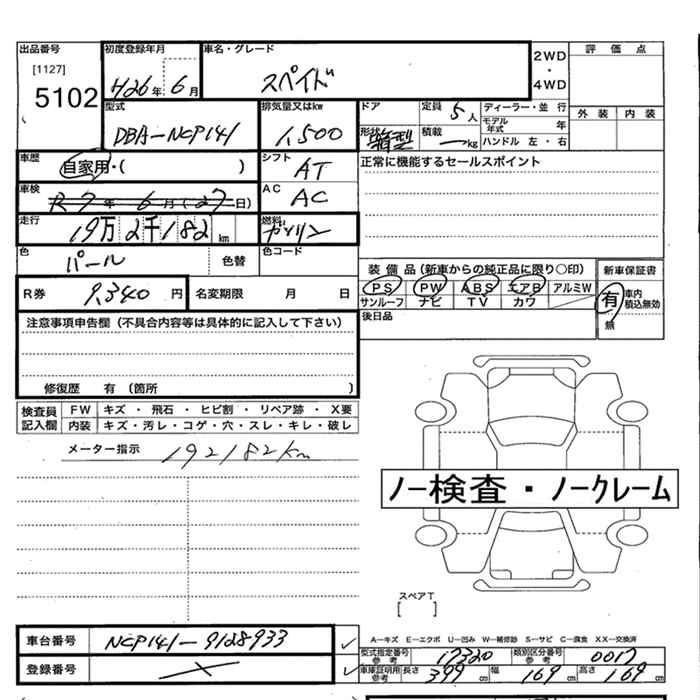 出品番号 初度登録年月 車名・グレード 2WD ・ 4WD 評価点
[1127] 5102 H26年 6月 スペイド
外装 内装
型式 排気量又はkw ドア 定員 5人 ディーラー・並行
DBA-NCP141 1,500 形状 箱型 積載 ―kg モデル年式 年
ハンドル 左・右
車歴 自家用・( ) シフト AT 正常に機能するセールスポイント
車検 R7年 6月(27日) AC AC
走行 19万2千182km 燃料 ガソリン
色 パール 色替 色コード
装備品(新車からの純正品に限り○印) 新車保証書
R券 9,340円 名変期限 月 日 PS PW ABS エアB アルミW 有 車内積込無効
サンルーフ ナビ TV カワ 無
注意事項申告欄(不具合内容等は具体的に記入して下さい) 後日品
修復歴 有(箇所 )
検査員記入欄 FW キズ・飛石・ヒビ割・リペア跡・X要
内装 キズ・汚レ・コゲ・穴・スレ・キレ・破レ
メーター指示 192182km
ノー検査・ノークレーム
スペアT
[ ]
A―キズ E―エクボ U―凹み W―補修跡 S―サビ C―腐食 XX―交換済
車台番号 NCP141-9128933 型式指定番号 参考 17320 類別区分番号 参考 0017
登録番号 車庫証明用 参考 長さ 399cm 幅 169cm 高さ 169cm